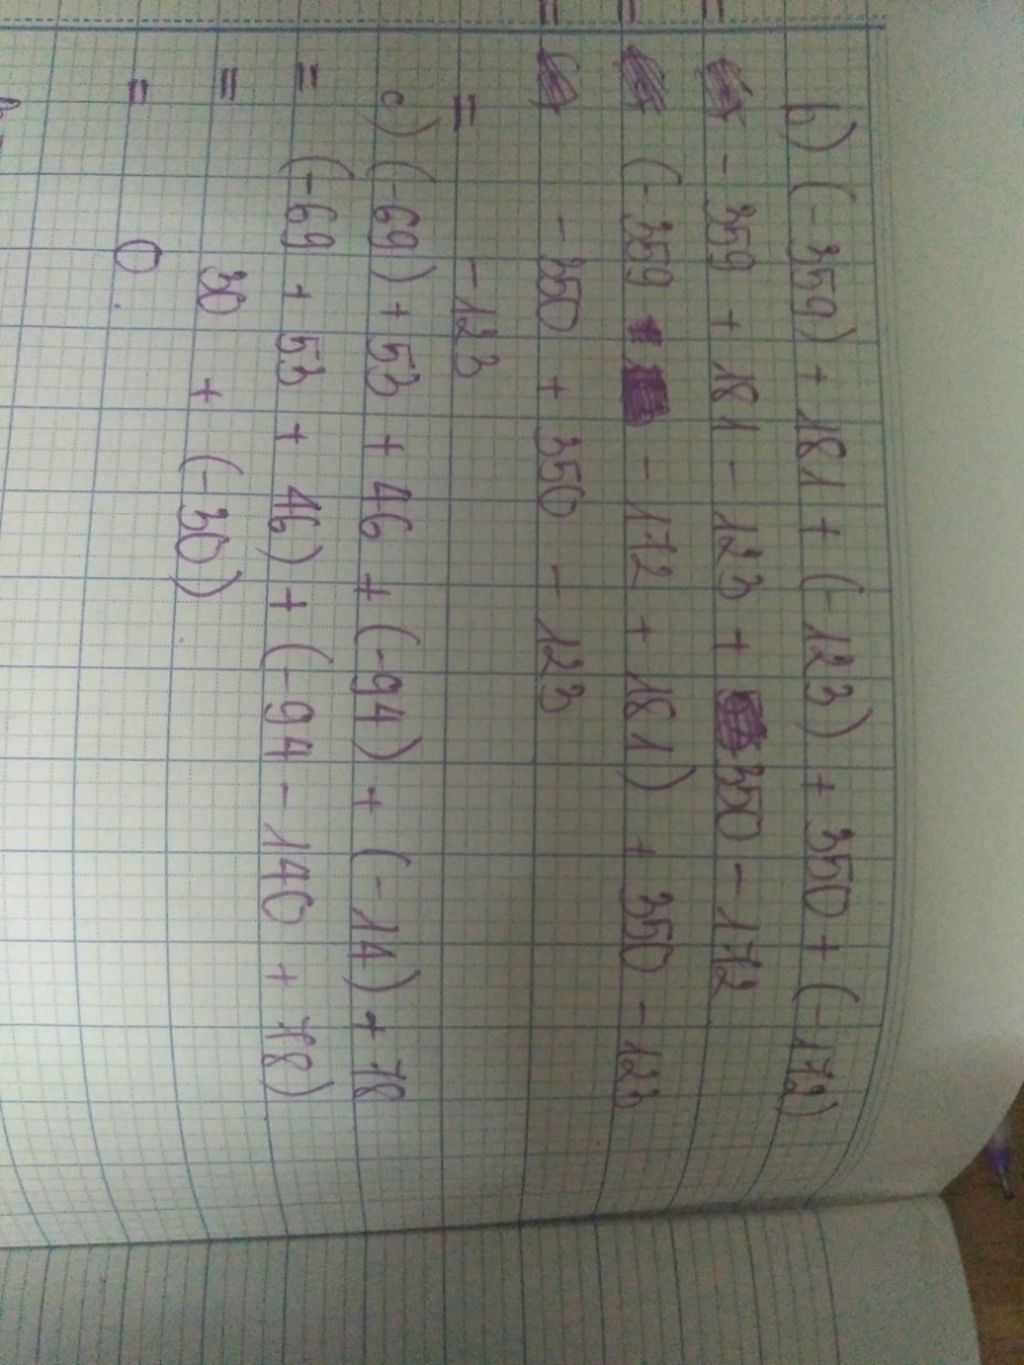 b) (-359) + 181 + (-123) + 350 + (-172)
- 359 + 181 - 123 + 350 - 172
(-359 - 172 + 181) + 350 - 123
- 350 + 350 - 123
= - 123
c) (-69) + 53 + 46 + (-94) + (-14) + 78
= (-69 + 53 + 46) + (-94 - 140 + 78)
= 30 + (-30)
= 0.